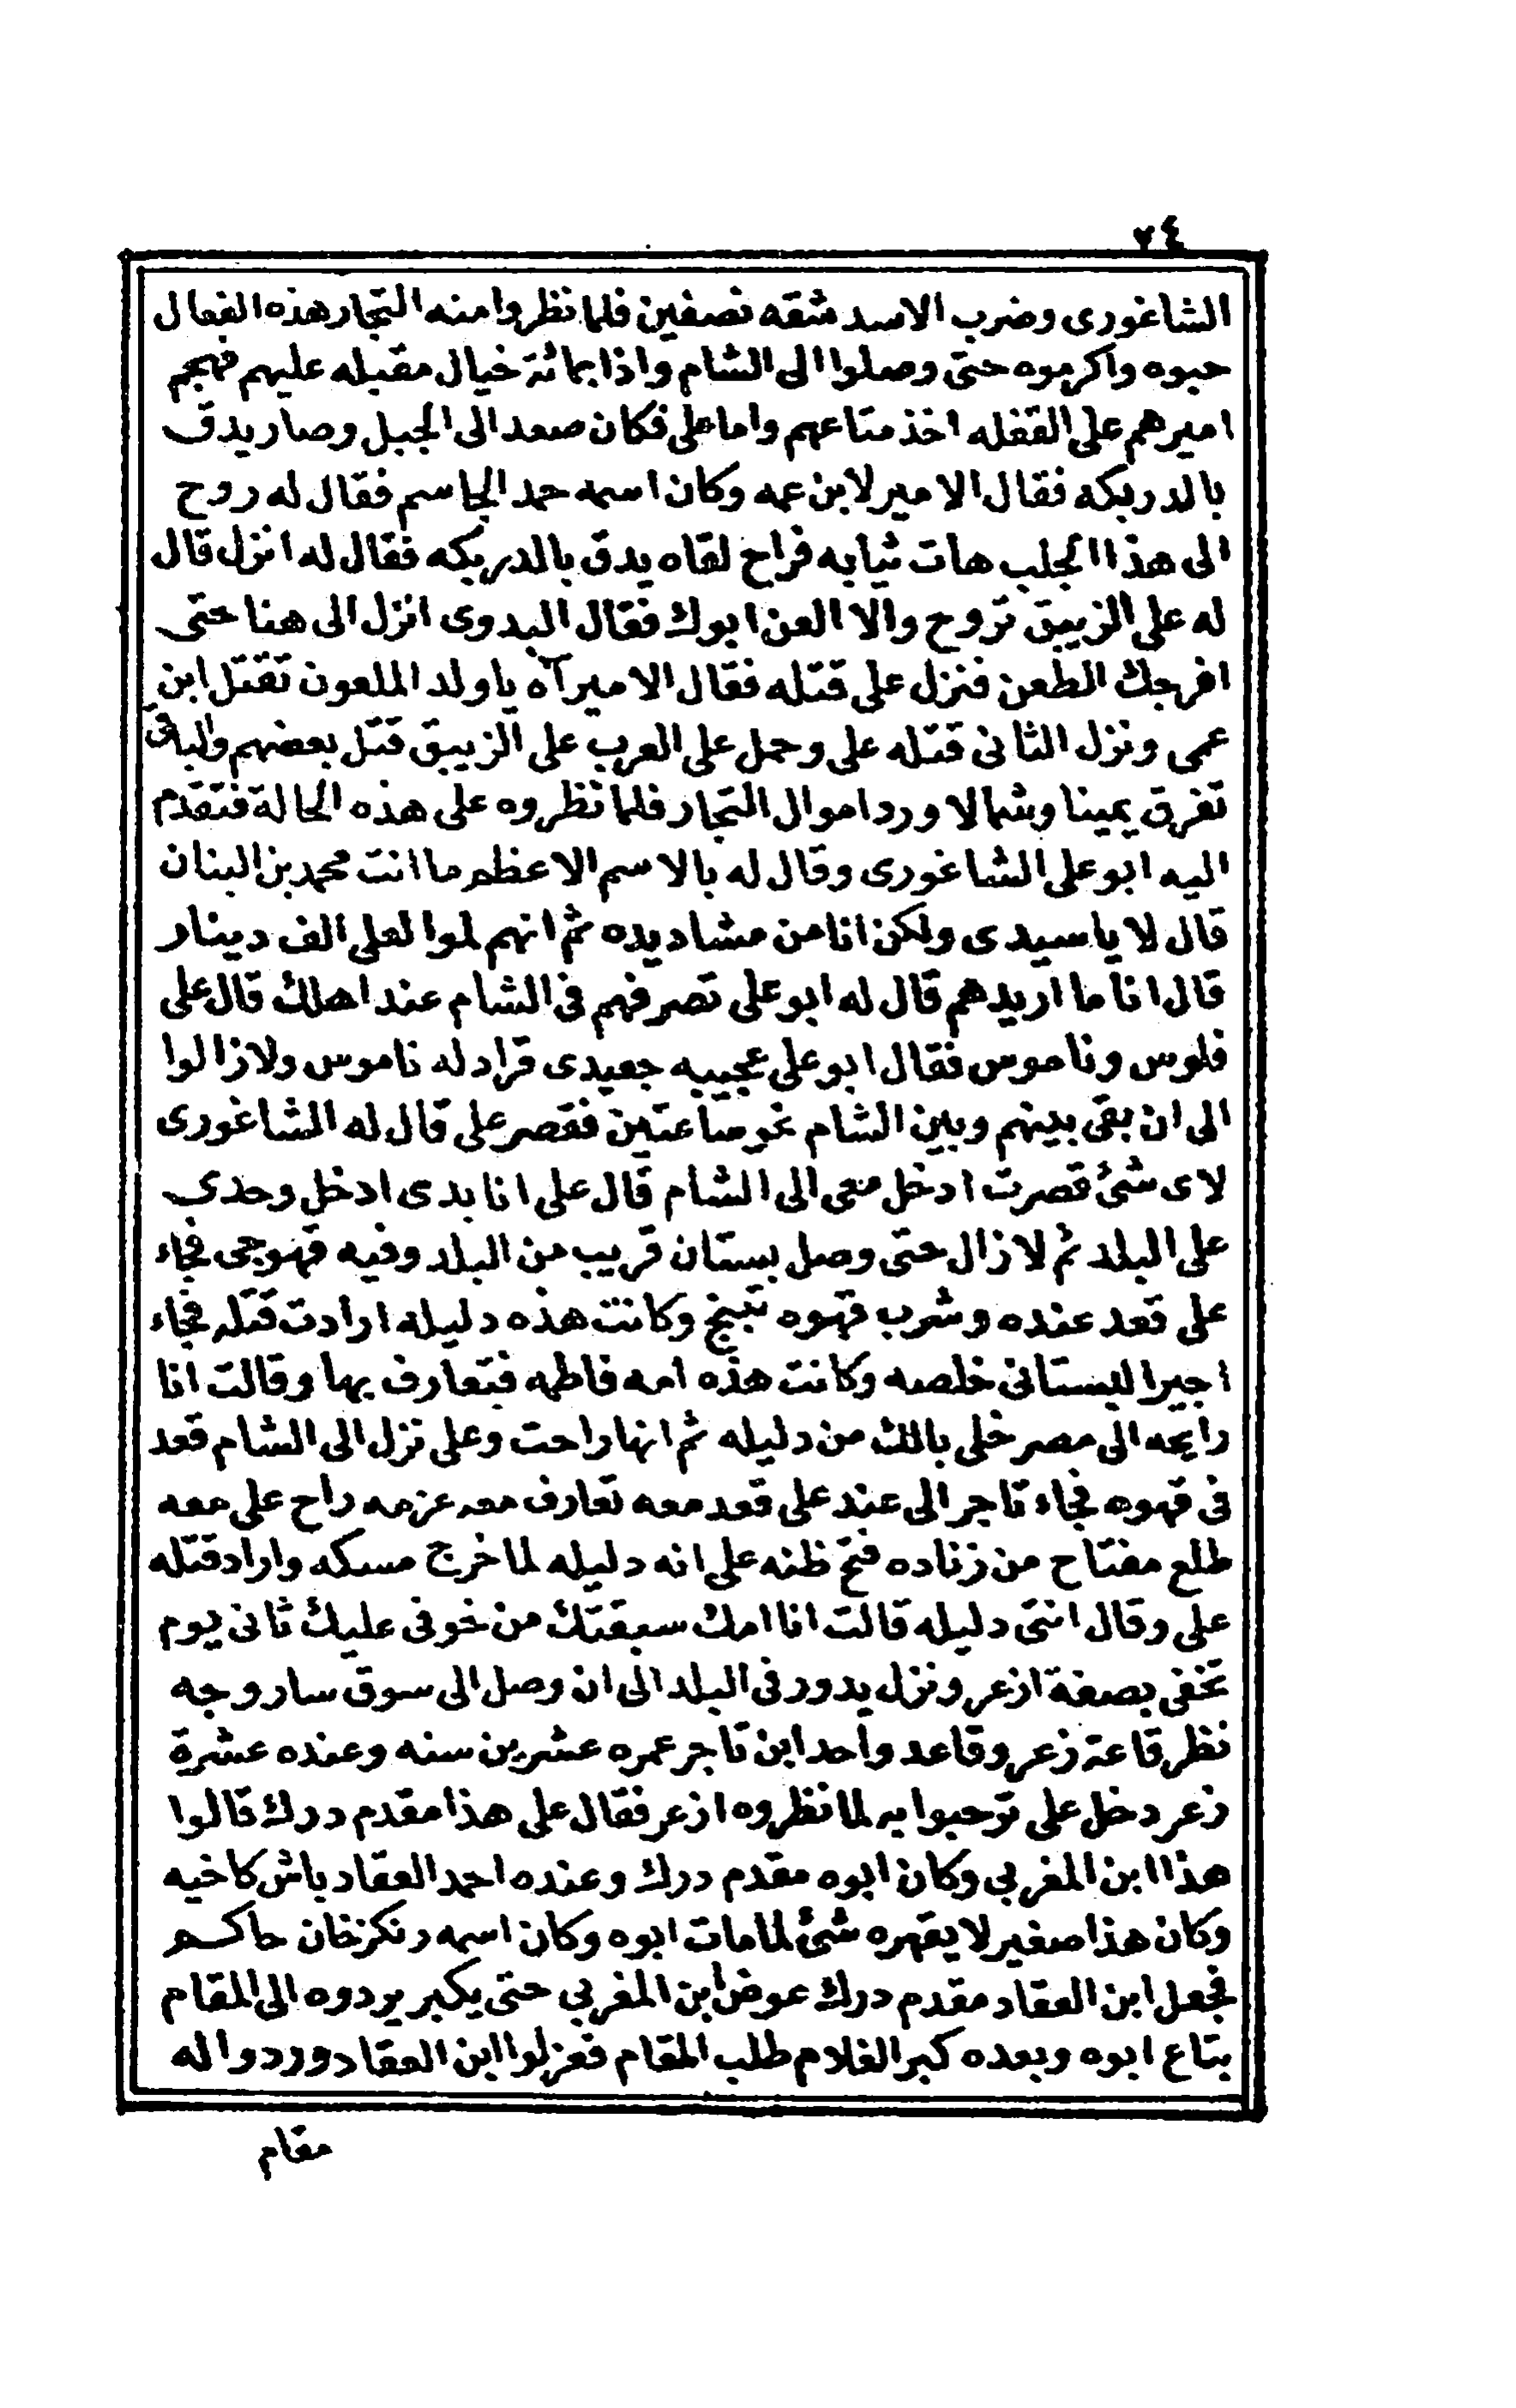 ٧٤
الشاغورى وضرب الاسد شقه نصفين فلما نظروا منه التجار هذه الفعال
حبوه واكرموه حتى وصلوا الى الشام واذا بمائة خيال مقبله عليهم فهجم
اميرهم على القفله اخذ متاعهم واما على فكان صعد الى الجبل وصار يدق
بالدربكه فقال الامير لابن عمه وكان اسمه حمد الجاسم فقال له روح
الى هذا الجلب هات ثيابه فراح لقاه يدق بالدربكه فقال له انزل قال
له على الزيبق تروح والا العن ابوك فقال البدوى انزل الى هنا حتى
افرجك الطعن فنزل على قتله فقال الامير آه ياولد الملعون تقتل ابن
عمى ونزل الثانى قتله على وحمل على العرب على الزيبق قتل بعضهم والباقى
تفرق يمينا وشمالا ورد اموال التجار فلما نظروه على هذه الحالة فتقدم
اليه ابو على الشاغورى وقال له بالاسم الاعظم ما انت محمد بن البنان
قال لا ياسيدى ولكن انا من مشاديده ثم انهم لموا لعلى الف دينار
قال انا ما اريدهم قال له ابو على تصرفهم فى الشام عند اهلك قال على
فلوس وناموس فقال ابو على عجيبه جعيدى قراد له ناموس ولازالوا
الى ان بقى بينهم وبين الشام نحو ساعتين فقصر على قال له الشاغورى
لاى شئ قصرت ادخل معى الى الشام قال على انا بدى ادخل وحدى
على البلد ثم لازال حتى وصل بستان قريب من البلد وفيه قهوجى فجاء
على قعد عنده وشرب قهوه تبنج وكانت هذه دليله ارادت قتله فجاء
اجير البستانى خلصه وكانت هذه امه فاطمه فتعارف بها وقالت انا
رايحه الى مصر خلى بالك من دليله ثم انها راحت وعلى نزل الى الشام قعد
فى قهوه فجاء تاجر الى عند على قعد معه تعارف معه عزمه راح على معه
طلع مفتاح من زناده فتح ظنه على انه دليله لما خرج مسكه واراد قتله
على وقال انتى دليله قالت انا امك سبقتك من خوفى عليك ثانى يوم
تخفى بصفة ازعر ونزل يدور فى البلد الى ان وصل الى سوق ساروجه
نظر قاعة زعر وقاعد واحد ابن تاجر عمره عشرين سنه وعنده عشرة
زعر دخل على ترحبوا به لما نظروه ازعر فقال على هذا مقدم درك قالوا
هذا ابن المغربى وكان ابوه مقدم درك وعنده احمد العقاد باش كاخيه
وكان هذا صغير لا يقهره شئ لما مات ابوه وكان اسمه دنكزخان حاكم
فجعل ابن العقاد مقدم درك عوض ابن المغربى حتى يكبر يردوه الى المقام
بتاع ابوه وبعده كبر الغلام طلب المقام فعزلوا ابن العقاد وردوا له
مقام